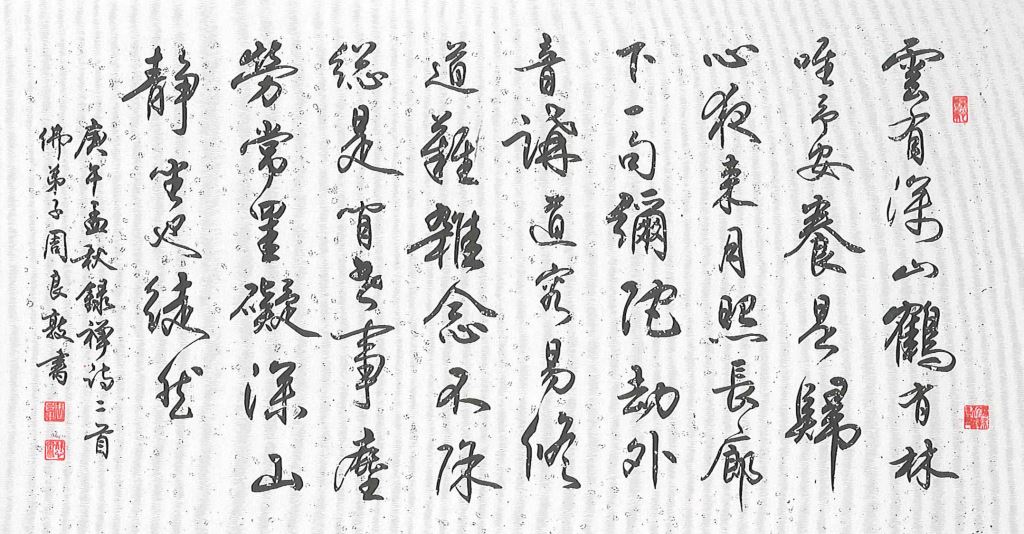 雲有深山鶴有林
唯予安養是歸
心夜來月照長廊
下一句彌陀劫外
音講道容易修
道難雜念不除
総是閒世事塵
勞常罣礙深山
静坐也徒然
庚午孟秋錄禪詩二首
佛弟子周良敦書